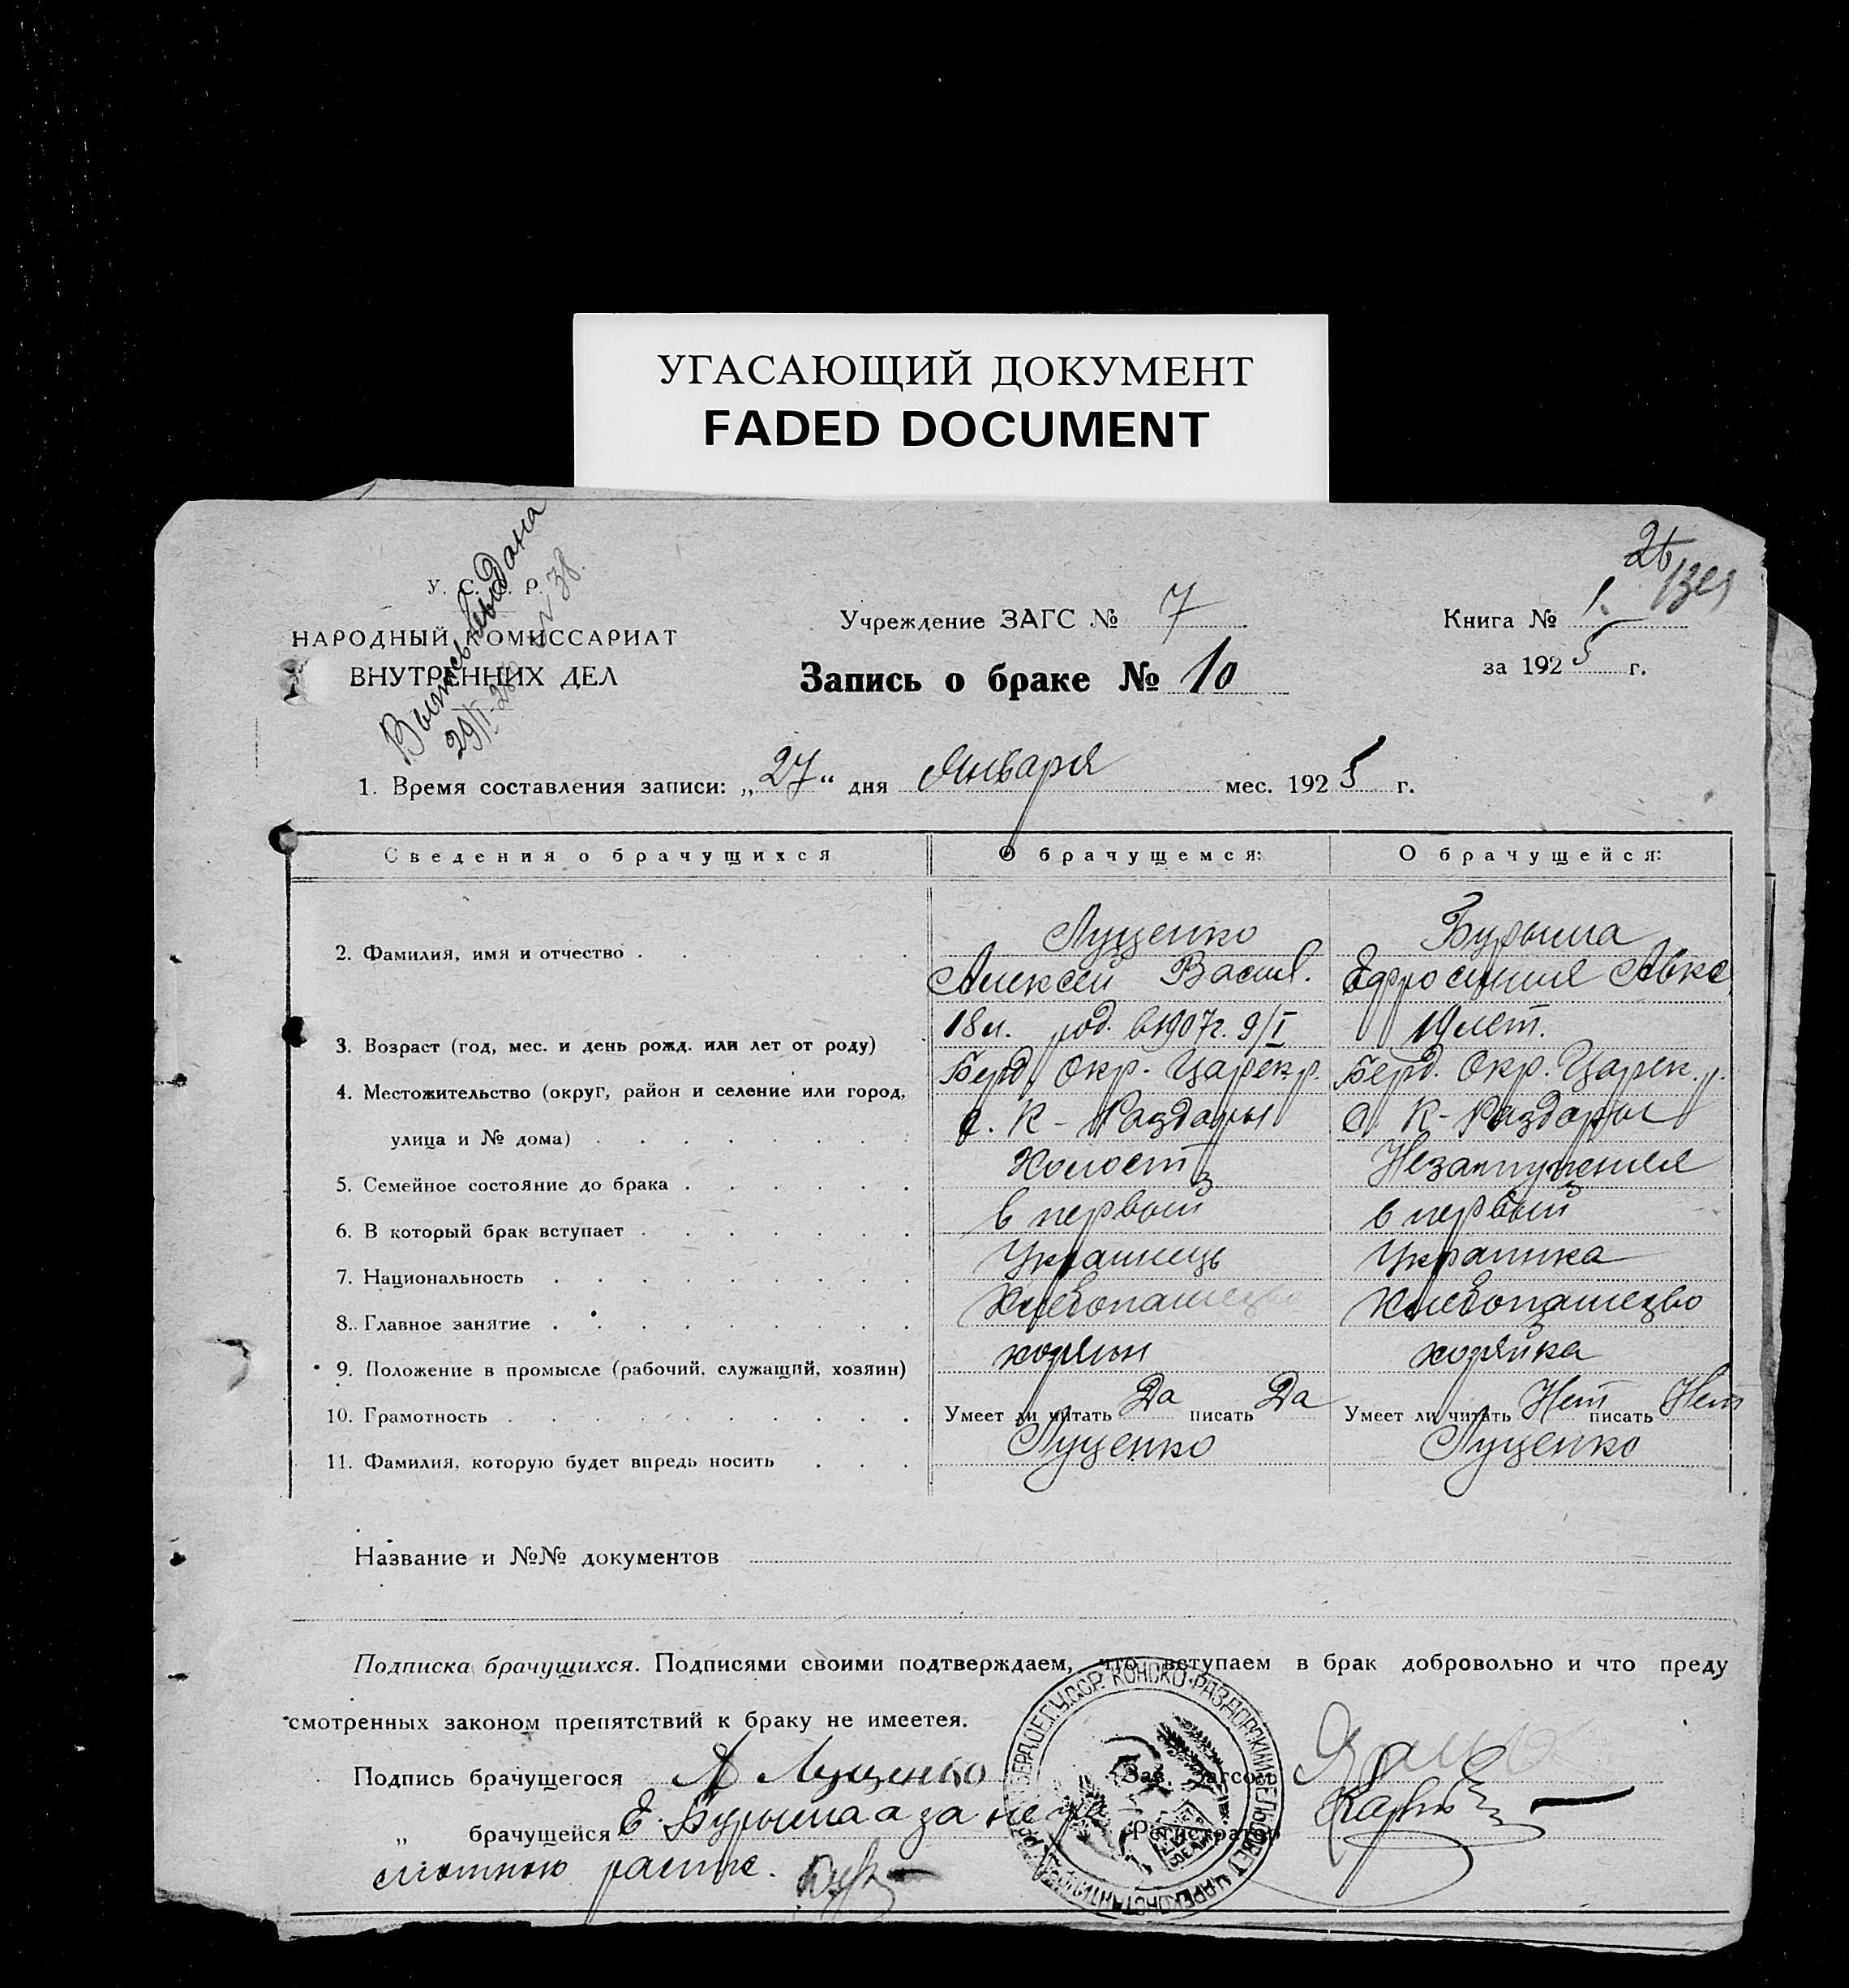 УГАСАЮЩИЙ ДОКУМЕНТ
FADED DOCUMENT
У. С. С. Р.
НАРОДНЫЙ КОМИССАРИАТ
ВНУТРЕННИХ ДЕЛ
выдана
Учреждение ЗАГС № 7
Запись о браке № 10
Книга № 1.
за 1925 г.
1. Время составления записи: „27“ дня Января мес. 1925 г.
Сведения о брачущихся О брачущемся: О брачущейся:
Луценко Бурыма
2. Фамилия, имя и отчество
Алексей Васил. Ефросиния Авкс
18 л. род. в 1907 г. 9/I 19 лет.
3. Возраст (год, мес. и день рожд. или лет от роду)
Берд. Окр. Царек. р. Берд. Окр. Царек. р.
4. Местожительство (округ, район и селение или город,
с. К-Раздоры с К-Раздоры
улица и № дома)
5. Семейное состояние до брака Холост Незамужняя
6. В который брак вступает в первый в первый
7. Национальность Украинець Украинка
8. Главное занятие Хлебопашество Хлебопашество
9. Положение в промысле (рабочий, служащий, хозяин) хозяин хозяйка
10. Грамотность Умеет ли читать Да писать Да Умеет ли читать Нет писать Нет
11. Фамилия, которую будет впредь носить Луценко Луценко
Название и №№ документов
Подписка брачущихся. Подписями своими подтверждаем, что вступаем в брак добровольно и что преду
смотренных законом препятствий к браку не имеетея.
Подпись брачущегося А Луценко Зав. Загсом
„ брачущейся Е. Бурыма а за негра- Регистратор
мотную распис.